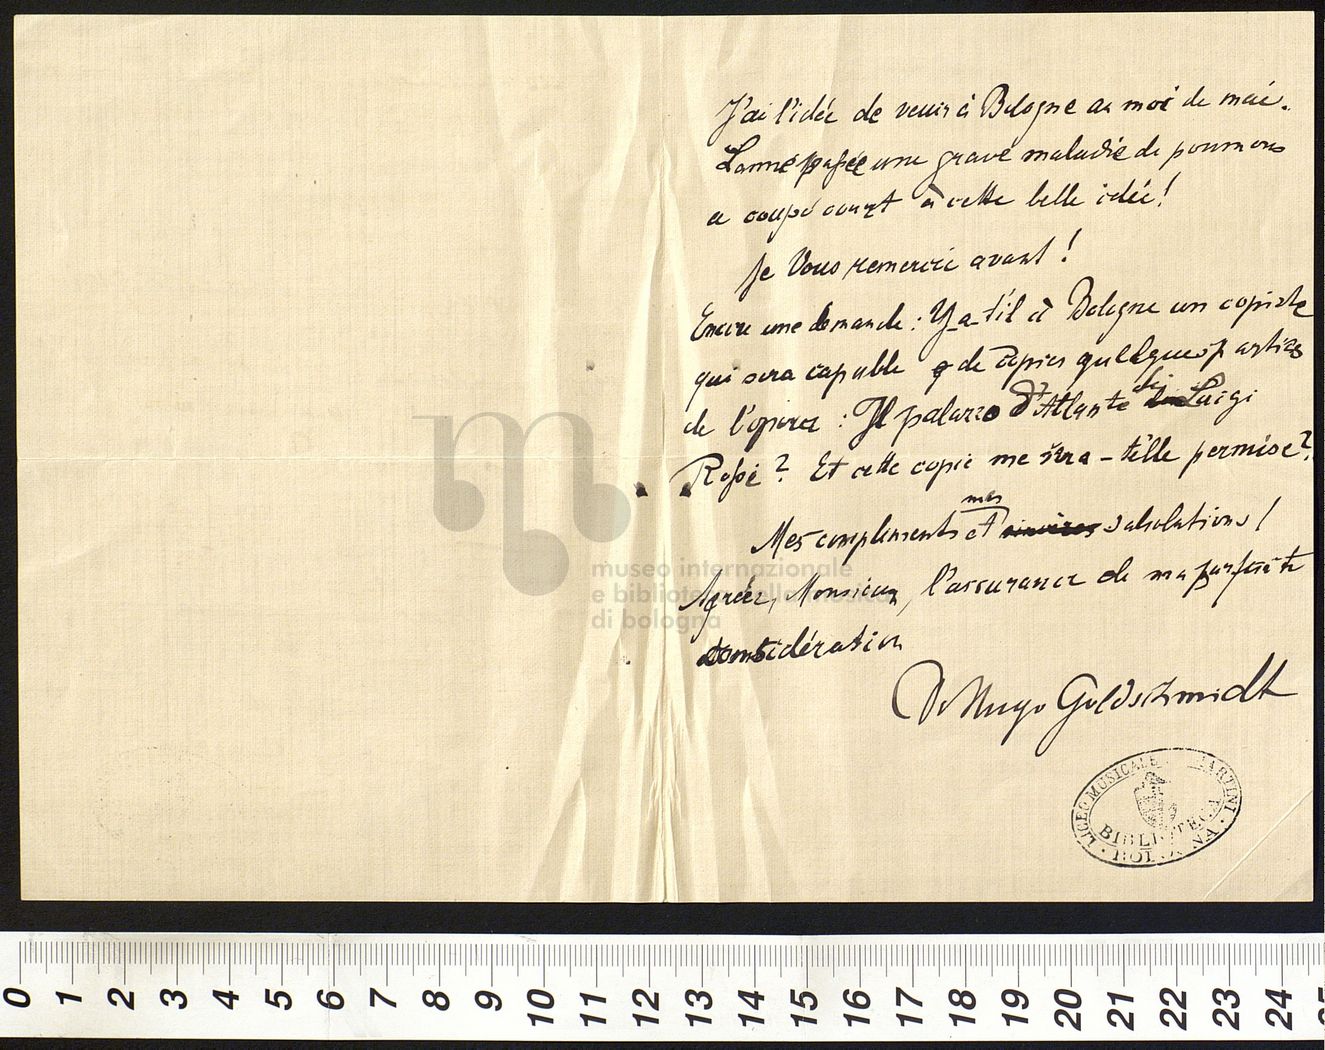 J'ai l'idée de venir à Bologne au moi de mai.
L'anné passée une grave maladie de poumons
a coupé court à cette belle idée!
Je Vous remercie avant!
Encore une demande: Y-a-t'il à Bologne un copiste
qui sera capable de copier quelques parties
de l'opera: Il palazzo d'Atlante di Luigi
Rossi? Et cette copie me sera-t'elle permise?
Mes compliments et mes salutations!
Agréez, Monsieur, l'assurance de ma parfaite
considération
Dr Hugo Goldschmidt
LICEO MUSICALE MARTINI
BIBLIOTECA
BOLOGNA
museo internazionale
e biblioteca della musica
di bologna
0 1 2 3 4 5 6 7 8 9 10 11 12 13 14 15 16 17 18 19 20 21 22 23 24